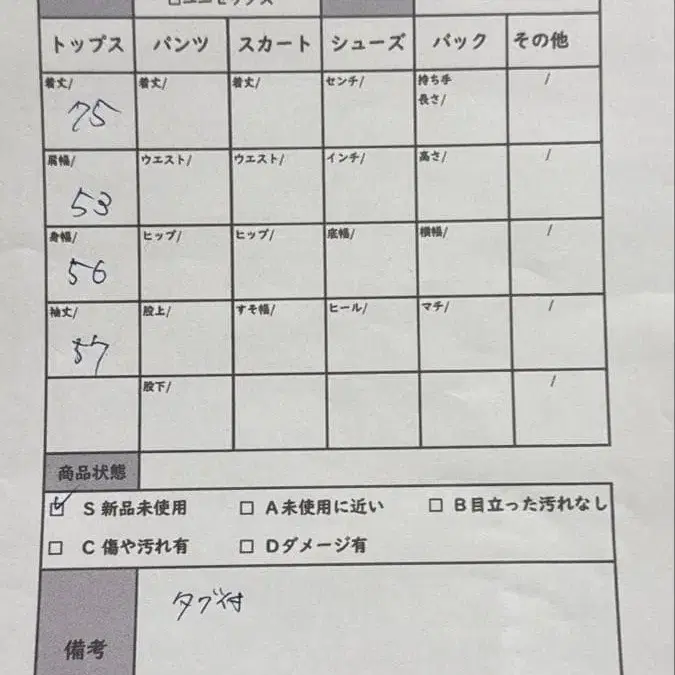 □ユニセックス
トップス パンツ スカート シューズ バック その他
着丈/ 着丈/ 着丈/ センチ/ 持ち手 /
長さ/
75
肩幅/ ウエスト/ ウエスト/ インチ/ 高さ/ /
53
身幅/ ヒップ/ ヒップ/ 底幅/ 横幅/ /
56
袖丈/ 股上/ すそ幅/ ヒール/ マチ/ /
57
股下/ /
商品状態
☑ S 新品未使用 □ A未使用に近い □ B目立った汚れなし
□ C 傷や汚れ有 □ Dダメージ有
タグ付
備考